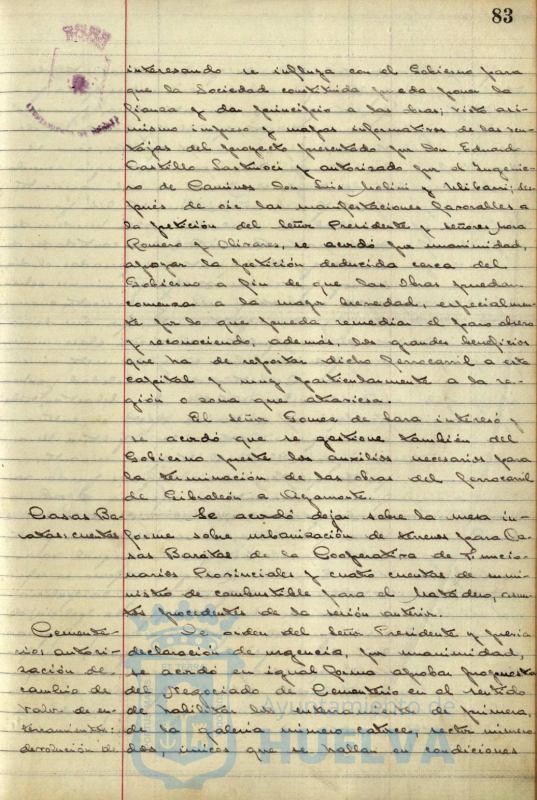 83
interesando se influya con el Gobierno para
que la Sociedad constituida pueda poner la
fianza y dar principio a las obras; visto asi-
mismo impreso y mapas informativos de las ven-
tajas del proyecto presentado por Don Eduardo
Castillo y autorizado por el Ingenie-
ro de Caminos Don Luis Molini y Ulibarri; des-
pués de oir las manifestaciones favorables a
la petición del Señor Presidente y señores Mora
Romero y Olivares, se acordó por unanimidad,
apoyar la petición deducida cerca del
Gobierno a fin de que las obras puedan
comenzar a la mayor brevedad, especialmen-
te por lo que pueda remediar el paro obrero
y reconociendo, además, los grandes beneficios
que ha de reportar dicho ferrocarril a esta
capital y muy particularmente a la re-
gión o zona que atraviesa.
El Señor Gomez de Lara interesó y
se acordó que se gestione también del
Gobierno preste los auxilios necesarios para
la terminación de las obras del ferrocarril
de Gibraleón a Ayamonte.
Casas Ba-
ratas; cuentas
Se acordó dejar sobre la mesa in-
forme sobre urbanización de terrenos para Ca-
sas Baratas de la Cooperativa de Funcio-
narios Provinciales y cuatro cuentas de sumi-
nistro de combustible para el Matadero, asun-
tos procedentes de la sesión anterior.
Cemente-
rio; autori-
zación de
cambio de
valor de en-
terramiento;
devolución de
De orden del Señor Presidente y previa
declaración de urgencia, por unanimidad,
se acordó en igual forma aprobar propuesta
del Negociado de Cementerio en el sentido
de habilitar los enterramientos de primera,
de la galería número catorce, sector número
dos, únicos que se hallan en condiciones
Ayuntamiento de
HUELVA